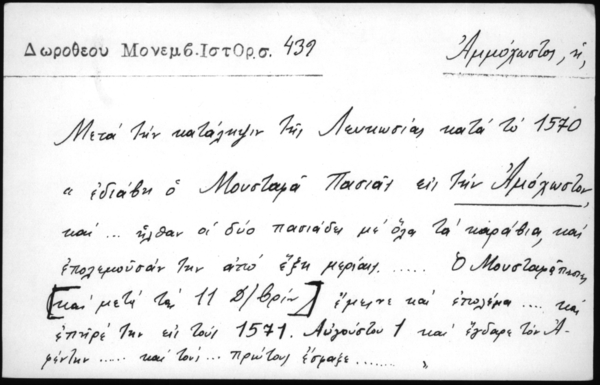 Δωροθεου Μονεμβ.ΙστΟρσ. 439
Ἀμμόχωστος, ἡ,
Μετά τήν κατάληψιν τῆς Λευκωσίας κατά τό 1570
« ἐδιάβη ὁ Μουσταφᾶ Πασιᾶς εις τήν Ἀμόχωστον,
καί ... ἦλθαν οἱ δύο πασιάδες μέ ὅλα τά καράβια, καί
ἐπολεμοῦσάν την ἀπό ἕξη μερίαις ..... Ὁ Μουσταφᾶπασιας
[καί μετά τάς 11 Ὀ/βρίου] ἔμεινε καί ἐπολέμα .... καί
ἐπῆρέ την εις τούς 1571. Αὐγούστου 1 καί ἔγδαρε τόν Ἀ-
μέντην ..... καί τούς ... πρώτους ἔσφαξε ....... »